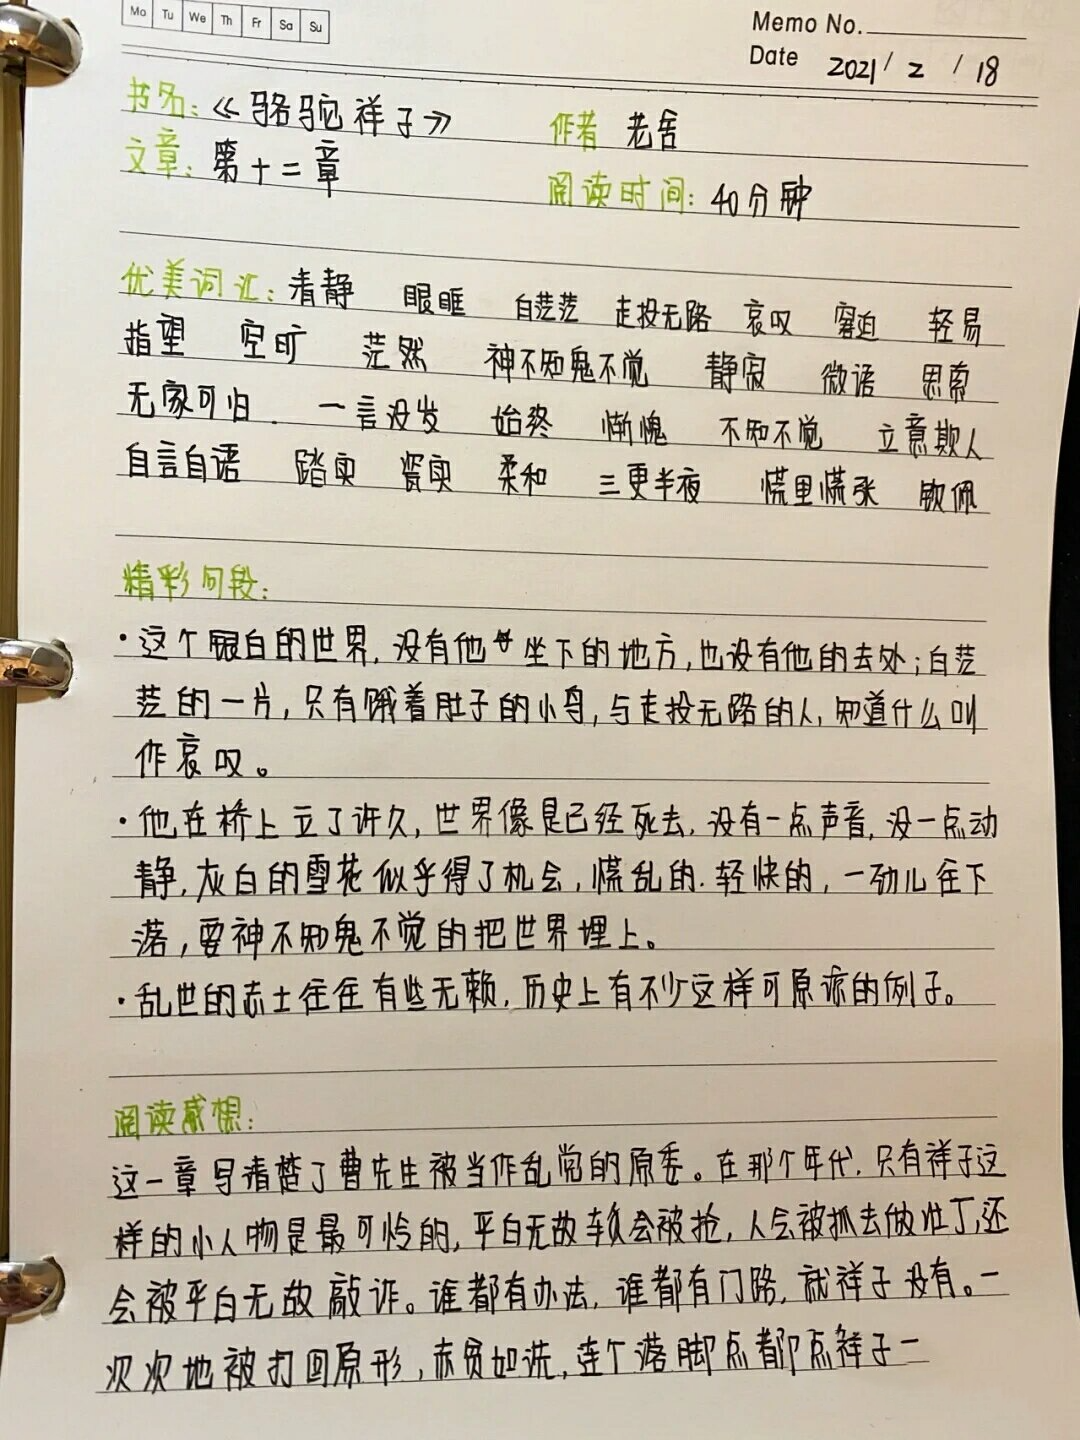 Mo Tu We Th Fr Sa Su
Memo No.
Date 2021 / 2 / 18
书名:《骆驼祥子》 作者 老舍
文章:第十二章 阅读时间:40分钟
优美词汇:清静 眼眶 白茫茫 走投无路 哀叹 窘迫 轻易
指望 空旷 茫然 神不知鬼不觉 静寂 微语 思索
无家可归 一言没发 始终 惭愧 不知不觉 立意欺人
自言自语 踏实 瓷实 柔和 三更半夜 慌里慌张 钦佩
精彩句段:
·这个银白的世界,没有他坐下的地方,也没有他的去处;白茫
茫的一片,只有饿着肚子的小鸟,与走投无路的人,知道什么叫
作哀叹。
·他在桥上立了许久,世界像是已经死去,没有一点声音,没一点动
静,灰白的雪花似乎得了机会,慌乱的.轻快的,一劲儿往下
落,要神不知鬼不觉的把世界埋上。
·乱世的志士往往有些无赖,历史上有不少这样可原谅的例子。
阅读感想:
这一章写清楚了曹先生被当作乱党的原委。在那个年代,只有祥子这
样的小人物是最可怜的,平白无故车会被抢,人会被抓去做壮丁,还
会被平白无故敲诈。谁都有办法,谁都有门路,就祥子没有。一
次次地被打回原形,赤贫如洗,连个落脚点都